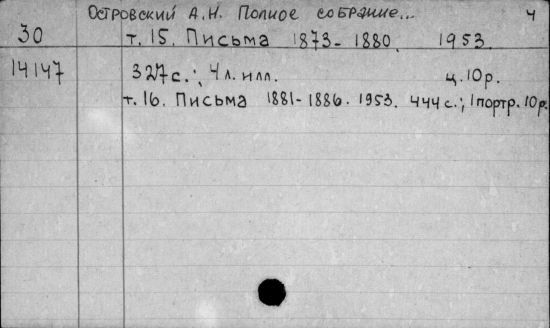 Островский А.Н. Полное собрание... 4
30 т. 15. Письма 1873-1880. 1953.
14147 327с.; 4 л. илл. ц. 10р.
т. 16. Письма 1881-1886. 1953. 444с.; 1 портр. 10р.